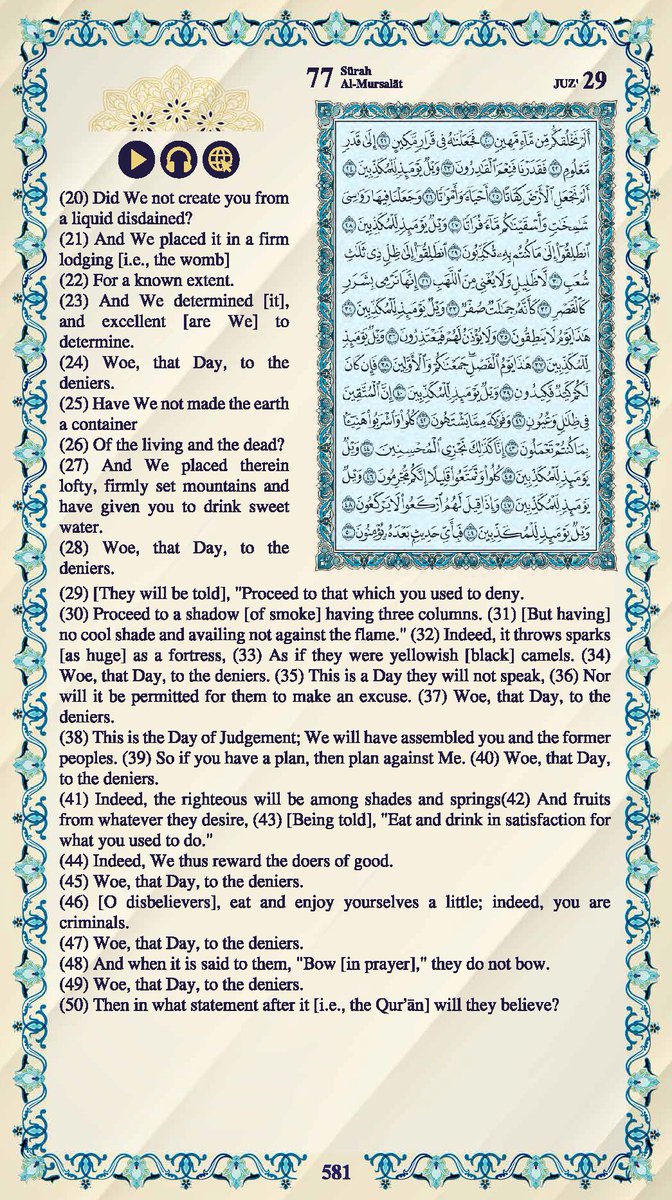 77 Sūrah
Al-Mursalāt
JUZ' 29
(20) Did We not create you from
a liquid disdained?
(21) And We placed it in a firm
lodging [i.e., the womb]
(22) For a known extent.
(23) And We determined [it],
and excellent [are We] to
determine.
(24) Woe, that Day, to the
deniers.
(25) Have We not made the earth
a container
(26) Of the living and the dead?
(27) And We placed therein
lofty, firmly set mountains and
have given you to drink sweet
water.
(28) Woe, that Day, to the
deniers.
أَلَمْ نَخْلُقكُّم مِّن مَّآءٍ مَّهِينٍ ٢٠ فَجَعَلْنَٰهُ فِى قَرَارٍ مَّكِينٍ ٢١ إِلَىٰ قَدَرٍ
مَّعْلُومٍ ٢٢ فَقَدَرْنَا فَنِعْمَ ٱلْقَٰدِرُونَ ٢٣ وَيْلٌ يَوْمَئِذٍ لِّلْمُكَذِّبِينَ ٢٤
أَلَمْ نَجْعَلِ ٱلْأَرْضَ كِفَاتًا ٢٥ أَحْيَآءً وَأَمْوَٰتًا ٢٦ وَجَعَلْنَا فِيهَا رَوَٰسِىَ
شَٰمِخَٰتٍ وَأَسْقَيْنَٰكُم مَّآءً فُرَاتًا ٢٧ وَيْلٌ يَوْمَئِذٍ لِّلْمُكَذِّبِينَ ٢٨
ٱنطَلِقُوٓا۟ إِلَىٰ مَا كُنتُم بِهِۦ تُكَذِّبُونَ ٢٩ ٱنطَلِقُوٓا۟ إِلَىٰ ظِلٍّ ذِى ثَلَٰثِ
شُعَبٍ ٣٠ لَّا ظَلِيلٍ وَلَا يُغْنِى مِنَ ٱللَّهَبِ ٣١ إِنَّهَا تَرْمِى بِشَرَرٍ
كَٱلْقَصْرِ ٣٢ كَأَنَّهُۥ جِمَٰلَتٌ صُفْرٌ ٣٣ وَيْلٌ يَوْمَئِذٍ لِّلْمُكَذِّبِينَ ٣٤
هَٰذَا يَوْمُ لَا يَنطِقُونَ ٣٥ وَلَا يُؤْذَنُ لَهُمْ فَيَعْتَذِرُونَ ٣٦ وَيْلٌ يَوْمَئِذٍ
لِّلْمُكَذِّبِينَ ٣٧ هَٰذَا يَوْمُ ٱلْفَصْلِ جَمَعْنَٰكُمْ وَٱلْأَوَّلِينَ ٣٨ فَإِن كَانَ
لَكُمْ كَيْدٌ فَكِيدُونِ ٣٩ وَيْلٌ يَوْمَئِذٍ لِّلْمُكَذِّبِينَ ٤٠ إِنَّ ٱلْمُتَّقِينَ
فِى ظِلَٰلٍ وَعُيُونٍ ٤١ وَفَوَٰكِهَ مِمَّا يَشْتَهُونَ ٤٢ كُلُوا۟ وَٱشْرَبُوا۟ هَنِيٓـًٔۢا
بِمَا كُنتُمْ تَعْمَلُونَ ٤٣ إِنَّا كَذَٰلِكَ نَجْزِى ٱلْمُحْسِنِينَ ٤٤ وَيْلٌ
يَوْمَئِذٍ لِّلْمُكَذِّبِينَ ٤٥ كُلُوا۟ وَتَمَتَّعُوا۟ قَلِيلًا إِنَّكُم مُّجْرِمُونَ ٤٦ وَيْلٌ
يَوْمَئِذٍ لِّلْمُكَذِّبِينَ ٤٧ وَإِذَا قِيلَ لَهُمُ ٱرْكَعُوا۟ لَا يَرْكَعُونَ ٤٨
وَيْلٌ يَوْمَئِذٍ لِّلْمُكَذِّبِينَ ٤٩ فَبِأَىِّ حَدِيثٍۭ بَعْدَهُۥ يُؤْمِنُونَ ٥٠
(29) [They will be told], "Proceed to that which you used to deny.
(30) Proceed to a shadow [of smoke] having three columns. (31) [But having]
no cool shade and availing not against the flame." (32) Indeed, it throws sparks
[as huge] as a fortress, (33) As if they were yellowish [black] camels. (34)
Woe, that Day, to the deniers. (35) This is a Day they will not speak, (36) Nor
will it be permitted for them to make an excuse. (37) Woe, that Day, to the
deniers.
(38) This is the Day of Judgement; We will have assembled you and the former
peoples. (39) So if you have a plan, then plan against Me. (40) Woe, that Day,
to the deniers.
(41) Indeed, the righteous will be among shades and springs(42) And fruits
from whatever they desire, (43) [Being told], "Eat and drink in satisfaction for
what you used to do."
(44) Indeed, We thus reward the doers of good.
(45) Woe, that Day, to the deniers.
(46) [O disbelievers], eat and enjoy yourselves a little; indeed, you are
criminals.
(47) Woe, that Day, to the deniers.
(48) And when it is said to them, "Bow [in prayer]," they do not bow.
(49) Woe, that Day, to the deniers.
(50) Then in what statement after it [i.e., the Qur'ān] will they believe?
581